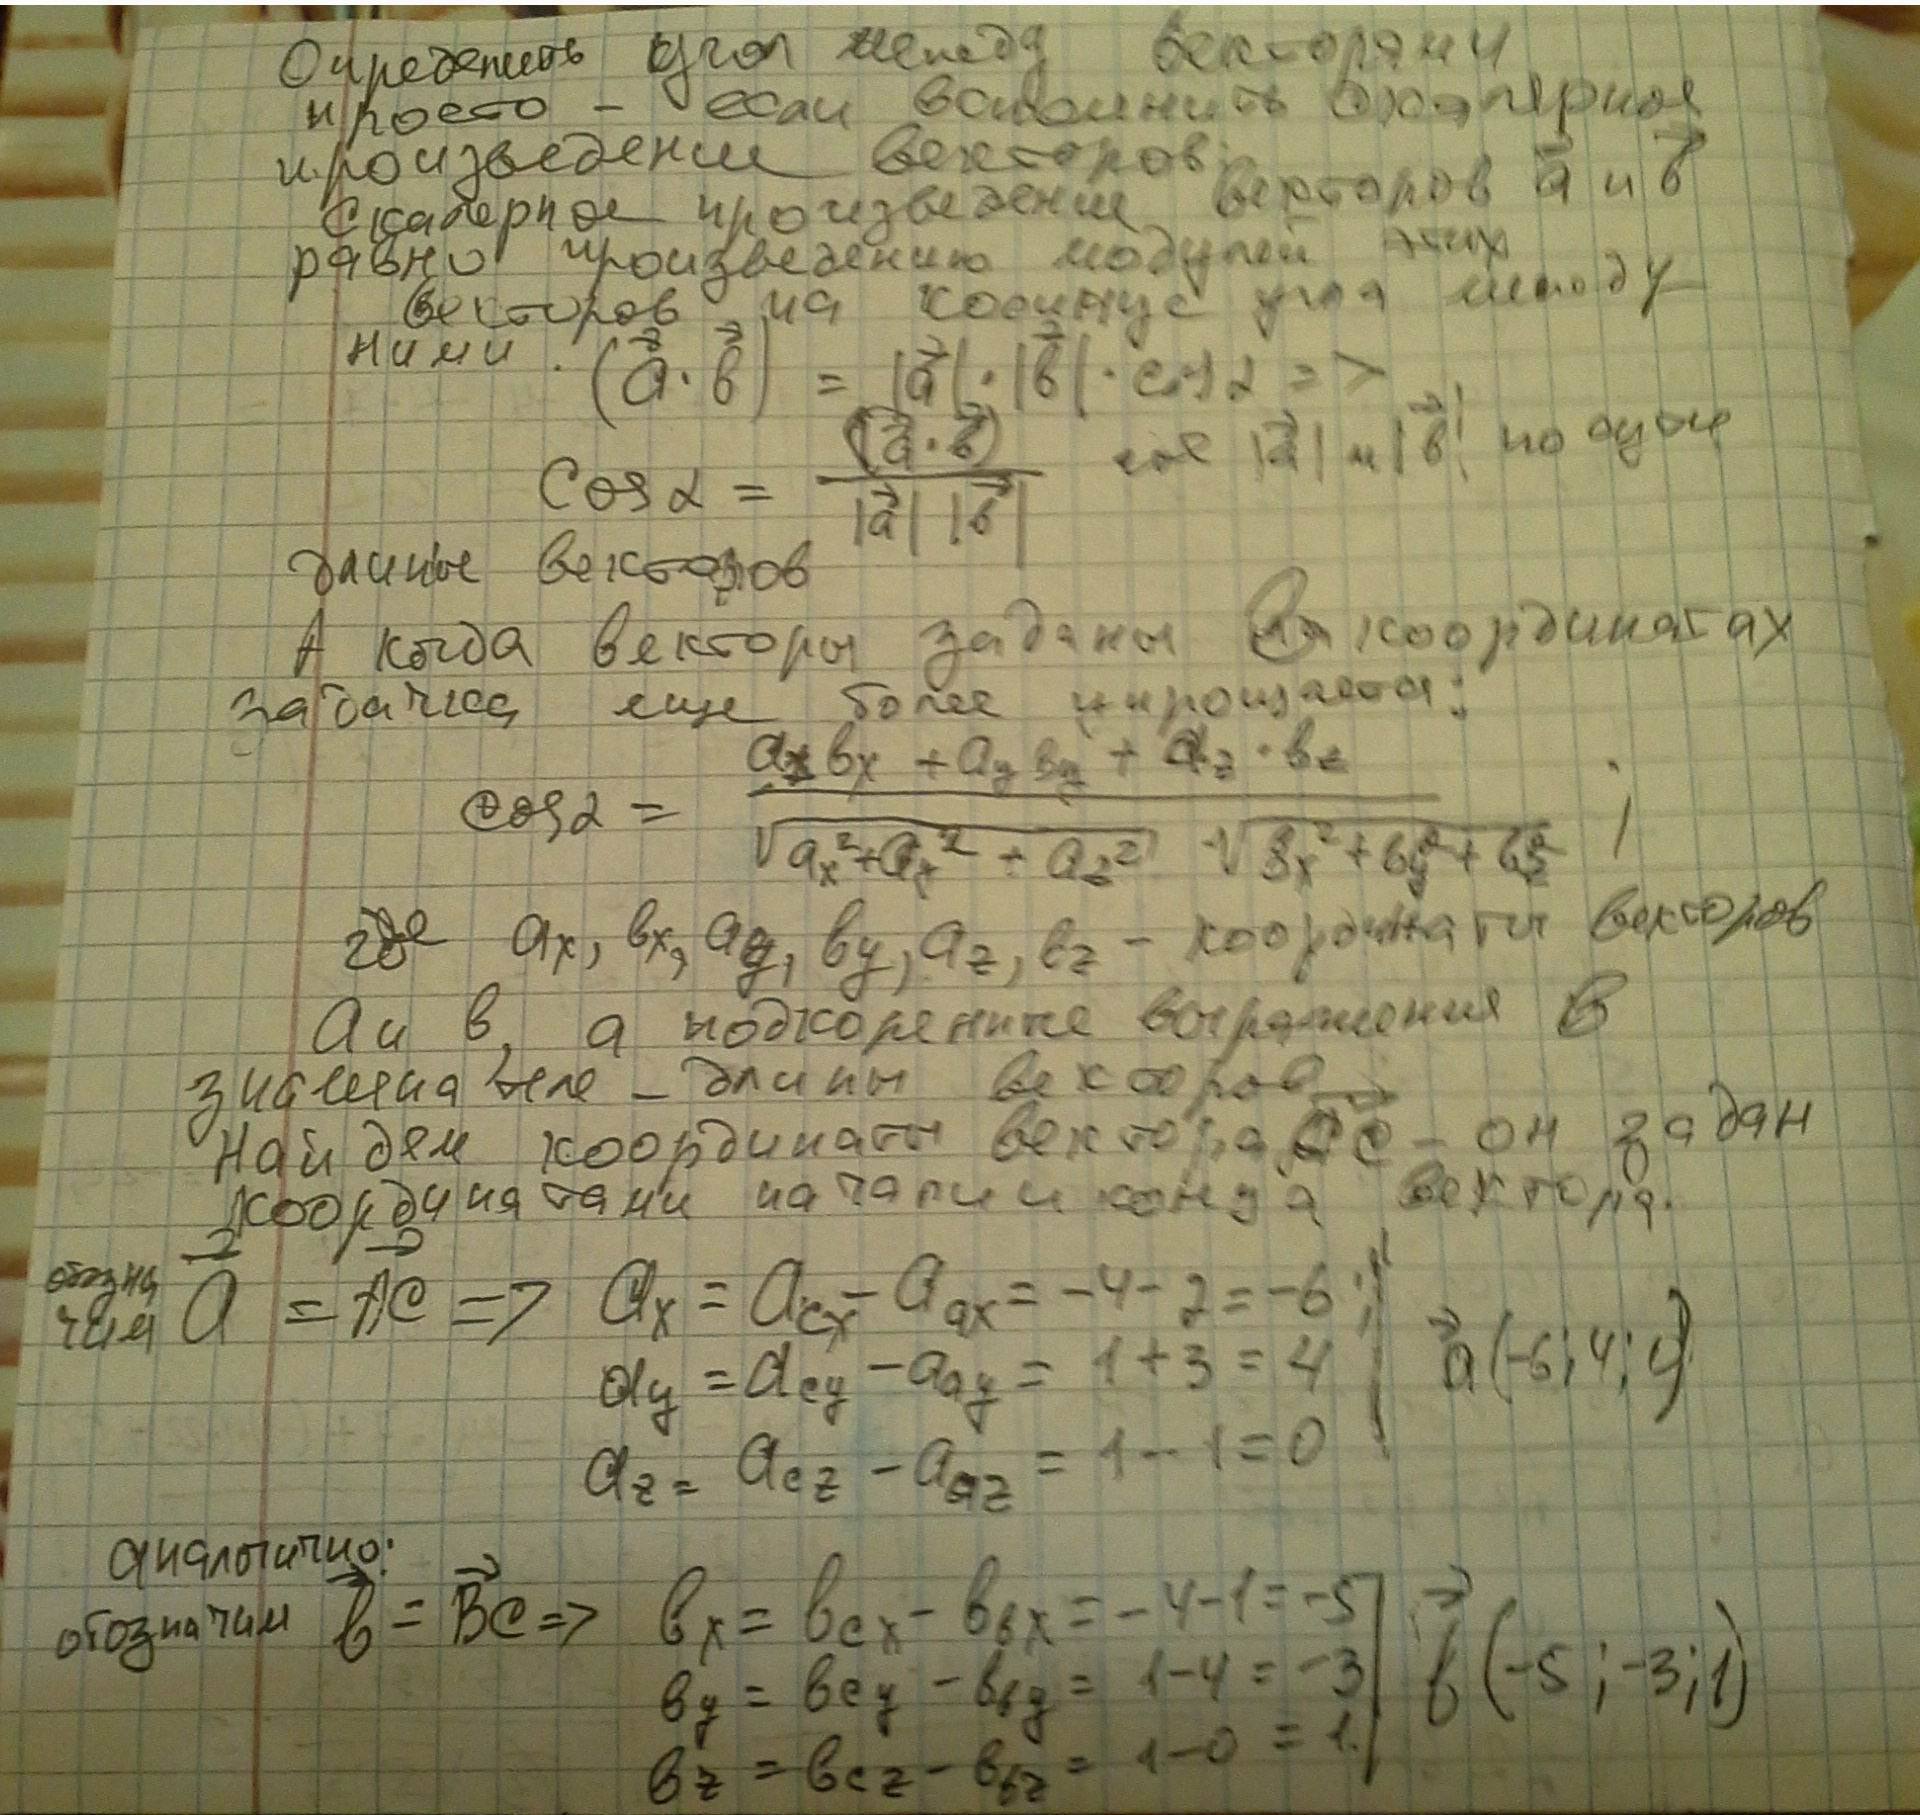 Определить угол между векторами
просто - если вспомнить скалярное
произведение векторов:
Скалярное произведение векторов a⃗ и b⃗
равно произведению модулей этих
векторов на косинус угла между
ними. (a⃗·b⃗) = |a⃗|·|b⃗|·cos α =>
cos α = (a⃗·b⃗) / |a⃗| |b⃗| где |a⃗| и |b⃗| по сути
длины векторов
А когда векторы заданы в координатах
задачка еще более упрощается:
cos α = (aₓbₓ + a_y b_y + a_z · b_z) / (√(aₓ² + aₓ² + a_z²) · √(bₓ² + b_y² + b_z²));
где aₓ, bₓ, a_y, b_y, a_z, b_z - координаты векторов
a и b, а подкоренные выражения в
знаменателе - длины векторов
Найдем координаты вектора AC⃗ - он задан
координатами начали и конца вектора.
обозна
чим a⃗ = AC⃗ => aₓ = a_cx - a_ax = -4-2 = -6;
a_y = a_cy - a_ay = 1+3 = 4 a⃗(-6; 4; 0)
a_z = a_cz - a_az = 1-1 = 0
аналогично:
обозначим b⃗ = BC⃗ => bₓ = b_cx - b_bx = -4-1 = -5
b_y = b_cy - b_by = 1-4 = -3 b⃗(-5; -3; 1)
b_z = b_cz - b_bz = 1-0 = 1.